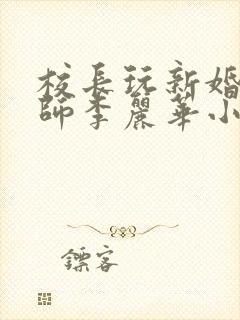 校長玩新婚
師李麗華小
鏢客